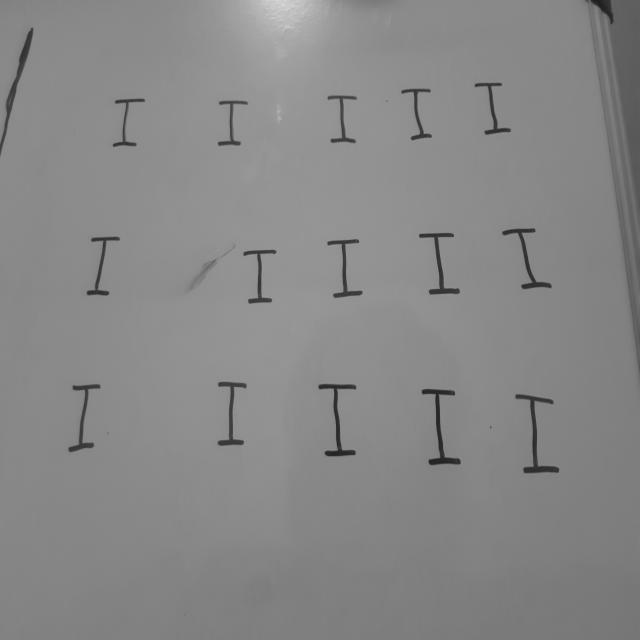 I I I I I
I I I I I
I I I I I